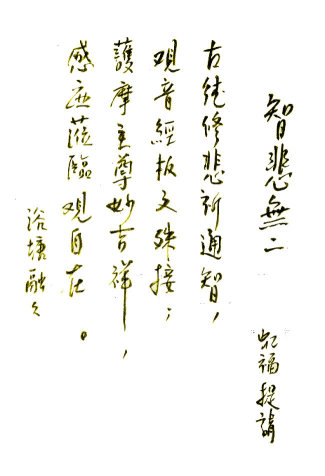 智悲無二
虹福提講
古德修悲新通智，
观音經板文殊接；
護摩主尊妙吉祥，
感应蒞臨观自在。
浴塘融久